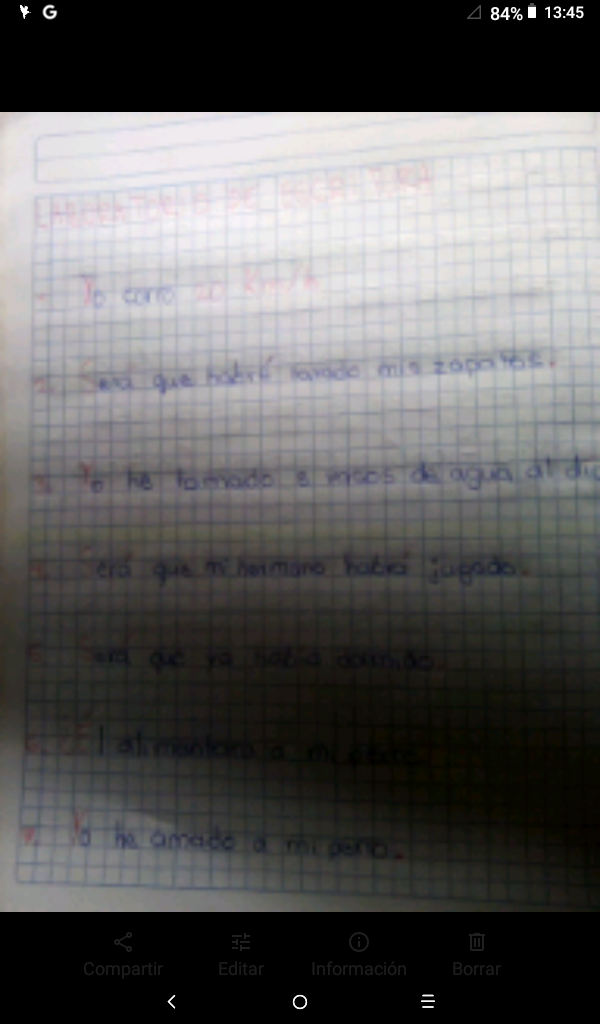 84% 13:45
LABORATORIO DE ESCRITURA
Yo corro 20 Km/h
2. Será que habré lavado mis zapatos.
3. Yo he tomado vasos de agua al
4. Será que mi hermano habrá jugado.
5. Será que ya dormido
6. El alimentará a mi perro
7. Yo he amado a mi perro.
Compartir Editar Información Borrar